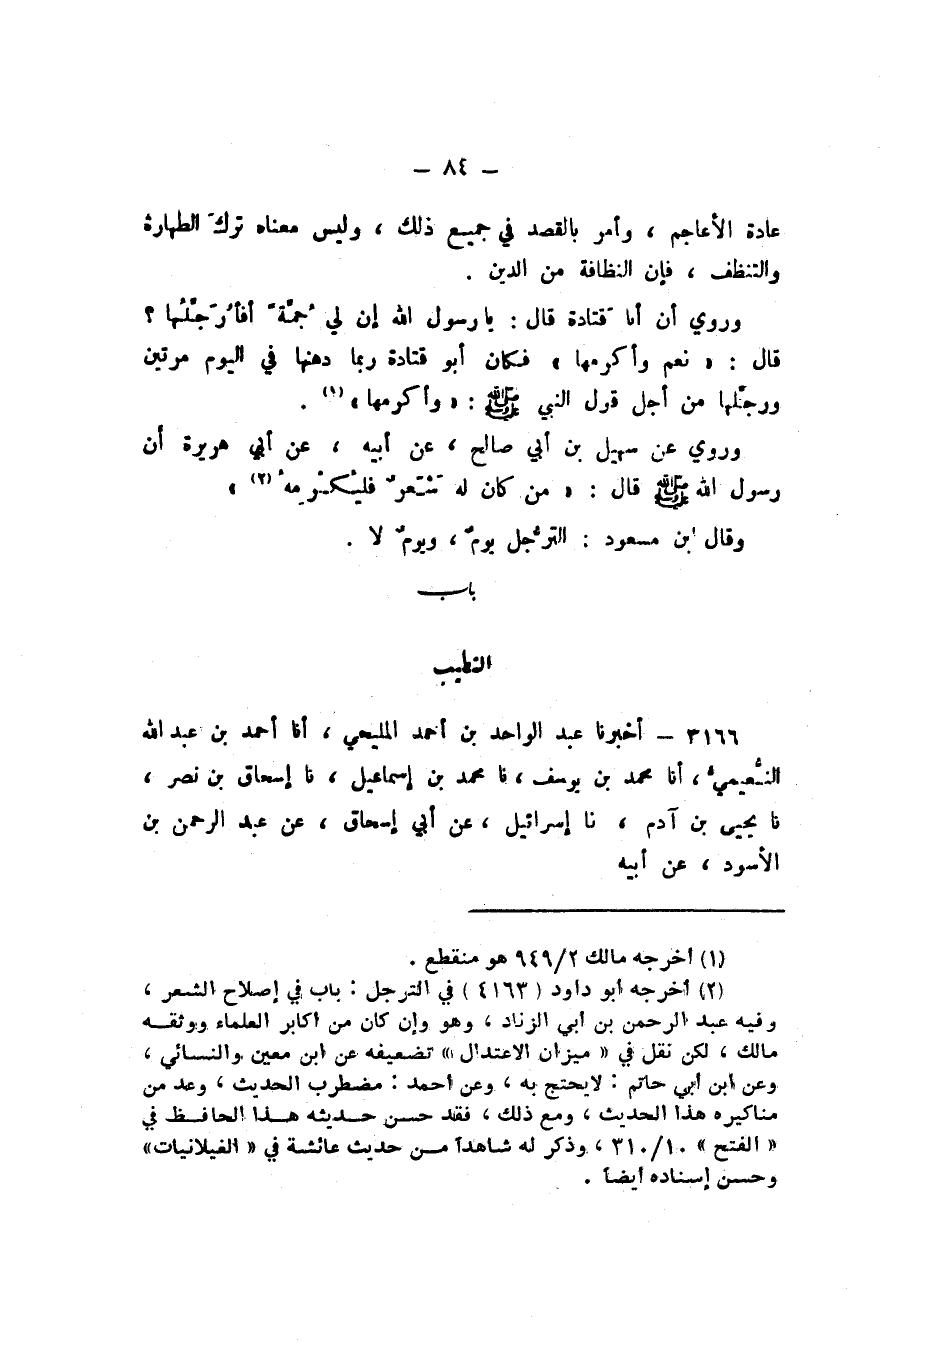 — ٨٤ —
عادة الأعاجم ، وأمر بالقصد في جميع ذلك ، وليس معناه تركَ الطهارة
والتنظف ، فإن النظافة من الدين .
وروي أن أبا قَتادة قال : يا رسول الله إن لي جُمَّةً أفأُرَجِّلُها ؟
قال : « نعم وأكرمها » فكان أبو قتادة ربما دهنها في اليوم مرتين
ورجَّلها من أجل قول النبي ﷺ : « وأكرمها » (١) .
وروي عن سهيل بن أبي صالح ، عن أبيه ، عن أبي هريرة أن
رسول الله ﷺ قال : « من كان له شَعَرٌ فليُكْرِمهُ (٢) »
وقال ابن مسعود : الترجُّل يومٌ ، ويومٌ لا .
باب
التطيب
٣١٦٦ — أخبرنا عبد الواحد بن أحمد المليحي ، أنا أحمد بن عبد الله
النُّعيميُّ ، أنا محمد بن يوسف ، نا محمد بن إسماعيل ، نا إسحاق بن نصر ،
نا يحيى بن آدم ، نا إسرائيل ، عن أبي إسحاق ، عن عبد الرحمن بن
الأسود ، عن أبيه
(١) أخرجه مالك ٩٤٩/٢ هو منقطع .
(٢) أخرجه أبو داود ( ٤١٦٣ ) في الترجل : باب في إصلاح الشعر ،
وفيه عبد الرحمن بن أبي الزناد ، وهو وإن كان من أكابر العلماء ووثقه
مالك ، لكن نقل في « ميزان الاعتدال » تضعيفه عن ابن معين والنسائي ،
وعن ابن أبي حاتم : لايحتج به ، وعن أحمد : مضطرب الحديث ، وعد من
مناكيره هذا الحديث ، ومع ذلك ، فقد حسن حديثه هذا الحافظ في
« الفتح » ٣١٠/١٠ ، وذكر له شاهداً من حديث عائشة في « الغيلانيات »
وحسن إسناده أيضاً .